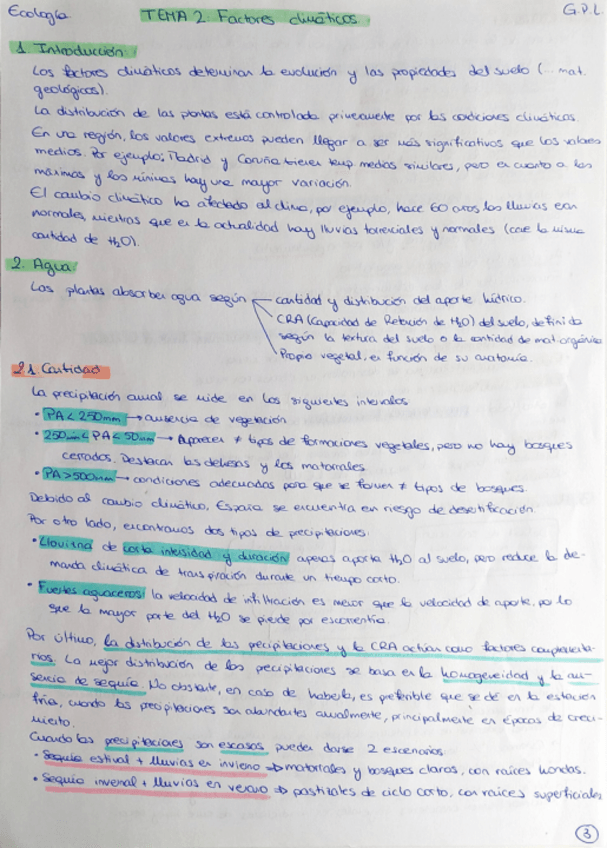 Ecología
TEMA 2. Factores climáticos
G.P.L.
1. Introducción
Los factores climáticos determinan la evolución y las propiedades del suelo (... mat.
geológicos).
La distribución de las plantas está controlada primeramente por las condiciones climáticas.
En una región, los valores extremos pueden llegar a ser más significativos que los valores
medios. Por ejemplo; Madrid y Coruña tienen temp medias similares, pero en cuanto a las
máximas y las mínimas hay una mayor variación.
El cambio climático ha afectado al clima, por ejemplo, hace 60 años las lluvias eran
normales, mientras que en la actualidad hay lluvias torrenciales y normales (cae la misma
cantidad de H₂O).
2. Agua
Las plantas absorben agua según
cantidad y distribución del aporte hídrico.
CRA (Capacidad de Retención de H₂O) del suelo, definida
según la textura del suelo o la cantidad de mat. orgánica
Propio vegetal, en función de su anatomía.
2.1. Cantidad
La precipitación anual se mide en los siguientes intervalos:
· PA < 250mm → ausencia de vegetación.
· 250mm < PA < 50mm → Aparecen ≠ tipos de formaciones vegetales, pero no hay bosques
cerrados. Destacan las dehesas y los matorrales.
· PA > 500mm → condiciones adecuadas para que se formen ≠ tipos de bosques.
Debido al cambio climático, España se encuentra en riesgo de desertificación.
Por otro lado, encontramos dos tipos de precipitaciones:
· Llovizna de corta intensidad y duración apenas aporta H₂O al suelo, pero reduce la de-
manda climática de transpiración durante un tiempo corto.
· Fuertes aguaceros: la velocidad de infiltración es menor que la velocidad de aporte, por lo
que la mayor parte del H₂O se pierde por escorrentía.
Por último, la distribución de las precipitaciones y la CRA actúan como factores complementa-
rios. La mejor distribución de las precipitaciones se basa en la homogeneidad y la au-
sencia de sequía. No obstante, en caso de haberla, es preferible que se dé en la estación
fría, cuando las precipitaciones son abundantes anualmente, principalmente en épocas de creci-
miento.
Cuando las precipitaciones son escasas pueden darse 2 escenarios:
· Sequía estival + lluvias en invierno ⇒ matorrales y bosques claros, con raíces hondas.
· Sequía invernal + lluvias en verano ⇒ pastizales de ciclo corto, con raíces superficiales
3